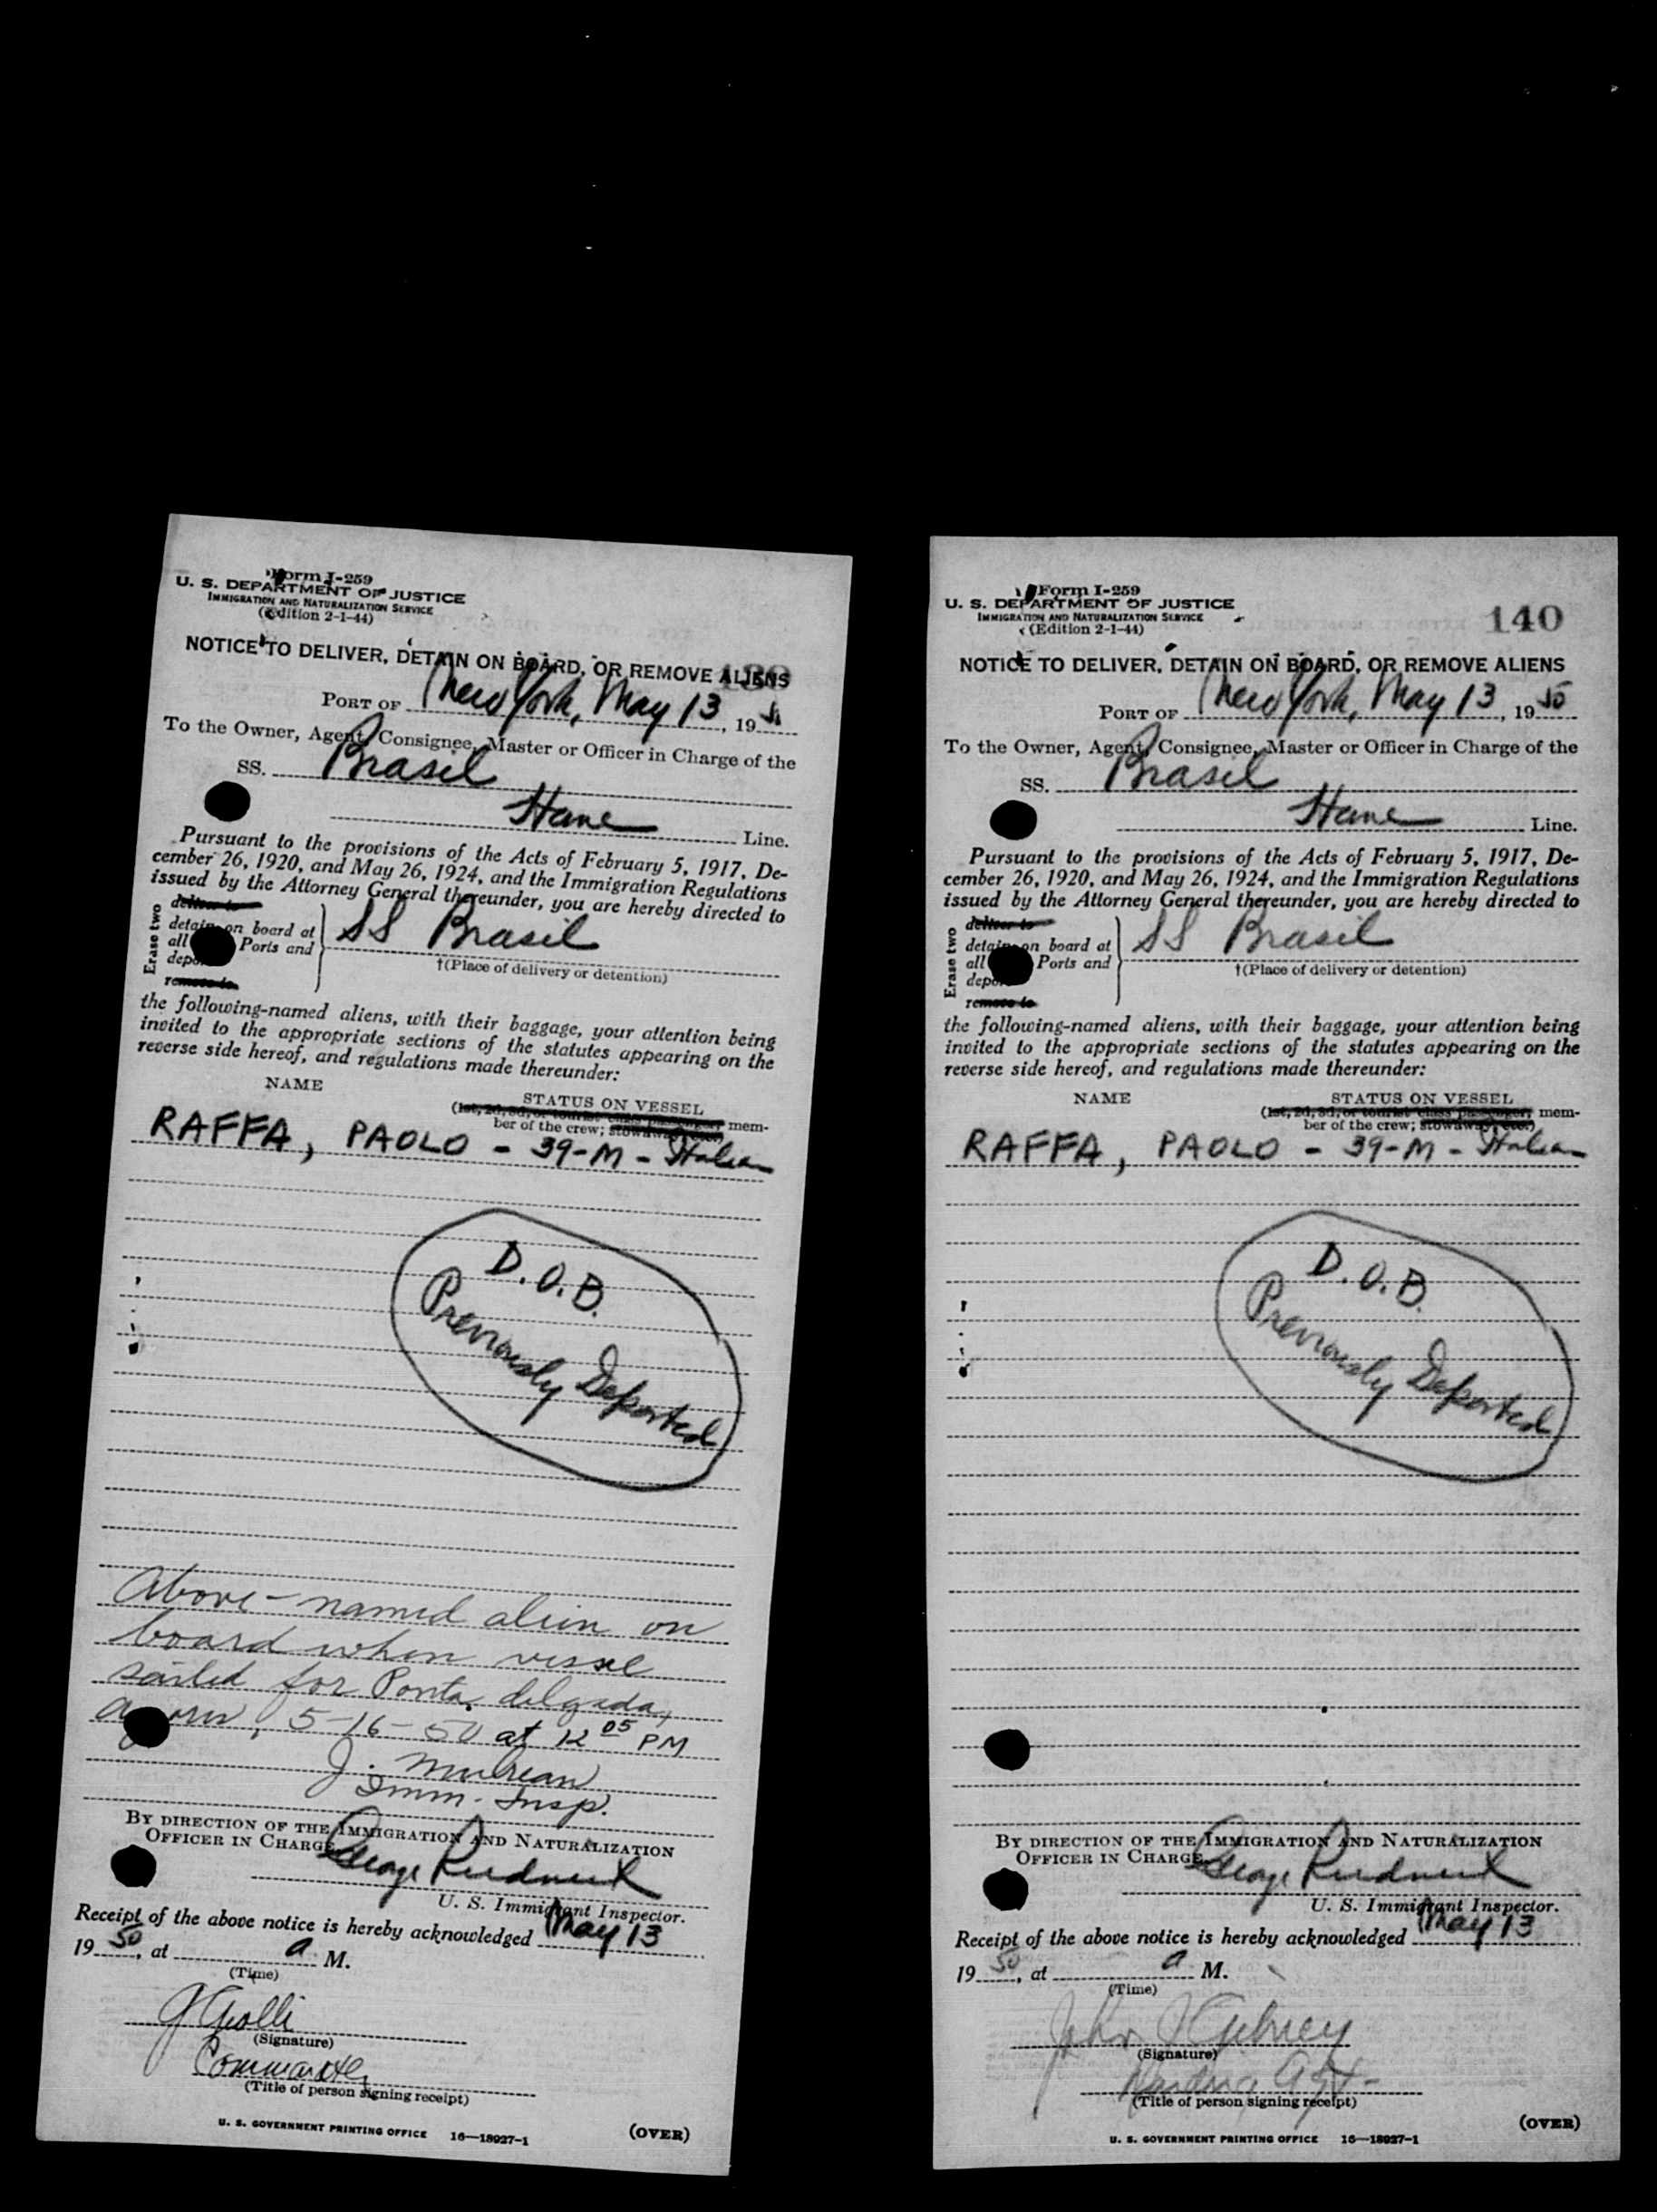 Form I-259
U. S. DEPARTMENT OF JUSTICE
IMMIGRATION AND NATURALIZATION SERVICE
(Edition 2-1-44)
NOTICE TO DELIVER, DETAIN ON BOARD, OR REMOVE ALIENS
PORT OF New York, May 13, 19
To the Owner, Agent, Consignee, Master or Officer in Charge of the
SS. Brasil
Line.
Pursuant to the provisions of the Acts of February 5, 1917, De-
cember 26, 1920, and May 26, 1924, and the Immigration Regulations
issued by the Attorney General thereunder, you are hereby directed to
Erase two
deliver to
detain on board at
all Ports and
SS Brasil
†(Place of delivery or detention)
remove to
the following-named aliens, with their baggage, your attention being
invited to the appropriate sections of the statutes appearing on the
reverse side hereof, and regulations made thereunder:
NAME
STATUS ON VESSEL
(1st, 2d, 3d, or tourist class passenger; mem-
ber of the crew; stowaway, etc.)
RAFFA, PAOLO - 39-M - Italian
D.O.B.
Previously Deported
Above-named alien on
board when vessel
sailed for Ponta delgada,
5-16-50 at 12 05 PM
J.
Imm. Insp.
BY DIRECTION OF THE IMMIGRATION AND NATURALIZATION
OFFICER IN CHARGE
George
U. S. Immigrant Inspector.
Receipt of the above notice is hereby acknowledged May 13
1950, at a M.
(Time)
(Signature)
(Title of person signing receipt)
U. S. GOVERNMENT PRINTING OFFICE 16—18927-1
(OVER)
Form I-259
U. S. DEPARTMENT OF JUSTICE
IMMIGRATION AND NATURALIZATION SERVICE
(Edition 2-1-44)
140
NOTICE TO DELIVER, DETAIN ON BOARD, OR REMOVE ALIENS
PORT OF New York, May 13, 1950
To the Owner, Agent, Consignee, Master or Officer in Charge of the
SS. Brasil
Line.
Pursuant to the provisions of the Acts of February 5, 1917, De-
cember 26, 1920, and May 26, 1924, and the Immigration Regulations
issued by the Attorney General thereunder, you are hereby directed to
Erase two
deliver to
detain on board at
all Ports and
SS Brasil
†(Place of delivery or detention)
remove to
the following-named aliens, with their baggage, your attention being
invited to the appropriate sections of the statutes appearing on the
reverse side hereof, and regulations made thereunder:
NAME
STATUS ON VESSEL
(1st, 2d, 3d, or tourist class passenger; mem-
ber of the crew; stowaway, etc.)
RAFFA, PAOLO - 39-M - Italian
D.O.B.
Previously Deported
BY DIRECTION OF THE IMMIGRATION AND NATURALIZATION
OFFICER IN CHARGE
George
U. S. Immigrant Inspector.
Receipt of the above notice is hereby acknowledged May 13
1950, at a M.
(Time)
John
(Signature)
(Title of person signing receipt)
U. S. GOVERNMENT PRINTING OFFICE 16—18927-1
(OVER)